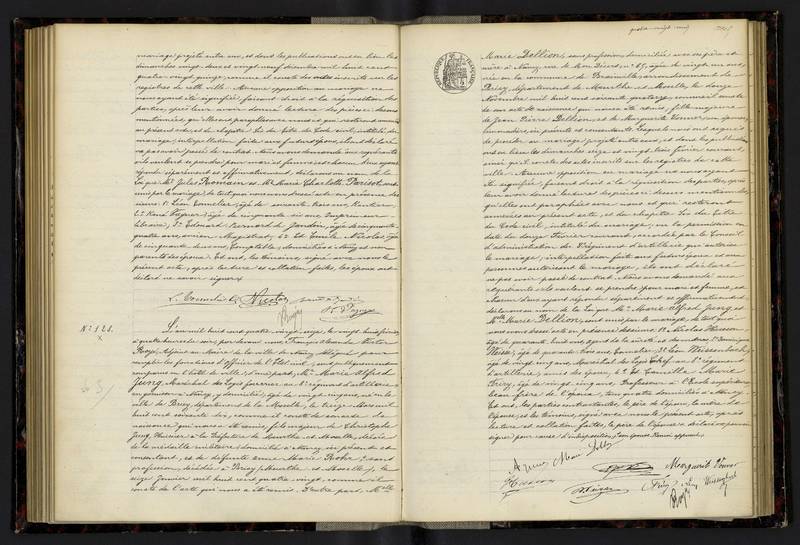 mariage projeté entre eux, et dont les publications ont eu lieu les
dimanches vingt-deux et vingt-neuf décembre mil huit cent
quatre-vingt-quinze, comme il conste des actes inscrits sur les
registres de cette ville. Aucune opposition au mariage ne
nous ayant été signifiée faisant droit à la réquisition des
parties, après leur avoir donné lecture des pièces dessus
mentionnées, qu'elles ont paraphées avec nous et qui resteront annexées
au présent acte, et du chapitre Six du titre du Code civil, intitulé du
mariage, interpellation faite aux futurs époux, ils ont déclaré
pas avoir passé de contrat. Nous avons demandé aux requérants
s'ils veulent se prendre pour mari et femme, et chacun d'eux ayant
répondu séparément et affirmativement, déclarons au nom de la
Loi que Mr Jules Romson et Mlle Marie Charlotte Parisot, sont
unis par le mariage, de tout quoi nous avons dressé acte en présence des
sieurs
René Vagner, âgé de cinquante six ans, Imprimeur
Libraire, 3° Edouard Bernard de Jandin, âgé de cinquante
quatre ans, ancien Magistrat, 4° Et Emile Nicolas, âgé
de cinquante deux ans, Comptable, domiciliés à Nancy et non
parents des époux. Et ont, les témoins, signé avec nous le
présent acte, après lecture et collation faites, les époux ont
déclaré ne savoir signer.
Nicolas
N° 128.
L'an mil huit cent quatre-vingt-seize, le vingt-huit février,
à quatre heures du soir, par devant nous François Alexandre Victor
Boyé, Adjoint au Maire de la ville de Nancy, délégué pour
remplir les fonctions d'officier de l'Etat civil, sont publiquement
comparus en l'hôtel de ville; d'une part, Mr Marie Alfred
Jung, Maréchal des Logis fourrier au 8e régiment d'artillerie
en garnison à Nancy, y domicilié, âgé de vingt-cinq ans, né en la
ville de Briey, département de la Moselle, le treize
huit cent soixante-dix, comme il conste de son acte de
naissance qui nous a été remis, fils majeur de Christophe
Jung, Huissier à la Préfecture de Meurthe et Moselle, décoré
de la médaille militaire, domicilié à Nancy, ici présent et
consentant, et de défunte Anne Marie Rohr, sans
profession, décédée à Briey (Meurthe et Moselle), le
seize Janvier mil huit cent quatre-vingt, comme il
conste de l'acte qui nous a été remis. D'autre part, Mlle
Marie Dellion, sans profession, domiciliée avec ses père et
mère à Nancy, rue St Dizier, âgée de vingt-un ans,
née en la commune de arrondissement de
Briey, département de Meurthe et Moselle, le douze
Novembre mil huit cent soixante quatorze, comme il conste
de son acte de naissance qui nous a été remis, fille majeure
de Jean Pierre Dellion, et de Marguerite Vonner, son épouse,
ici présents et consentants, lesquels nous ont requis
de procéder au mariage projeté entre eux, et dont les publications
ont eu lieu les dimanches seize et vingt-trois février courant,
ainsi qu'il conste des actes inscrits sur les registres de cette
ville. Aucune opposition au mariage ne nous ayant
été signifiée, faisant droit à la réquisition des parties, après
leur avoir donné lecture des pièces ci-dessus mentionnées,
qu'elles ont paraphées avec nous et qui resteront
annexées au présent acte, et du chapitre Six du titre
du Code civil, intitulé du mariage, vu la permission en
date du douze février courant, accordée par le Conseil
d'administration du Régiment d'artillerie qui autorise
le mariage; interpellation faite aux futurs époux et aux
personnes autorisant le mariage, ils ont déclaré
ne pas avoir passé de contrat. Nous avons demandé aux
requérants s'ils veulent se prendre pour mari et femme, et
chacun d'eux ayant répondu séparément et affirmativement,
déclarons au nom de la Loi que Mr Marie Alfred Jung, et
Mlle Marie Dellion, sont unis par le mariage, de tout quoi
nous avons dressé acte en présence des sieurs 1° Nicolas Husson
âgé de quarante huit ans, agent de la sûreté
Weiss, âgé de quarante trois ans, 3° Léon Weissenbach,
âgé de vingt-cinq ans, Maréchal des Logis Chef au 8e régiment
d'artillerie, amis des époux, 4° Et Camille Marie
Briey, âgé de vingt-cinq ans, Professeur à l'Ecole supérieure
beau-frère de l'épouse, tous quatre domiciliés à Nancy.
Et ont, les parties contractantes, le père de l'époux, la mère de
l'épouse, et les témoins, signé avec nous le présent acte, après
lecture et collation faites, le père de l'épouse a déclaré ne pouvoir
signer pour cause d'indisposition
A Jung Marie Dellion
Husson Marguerite Vonner
Boyé